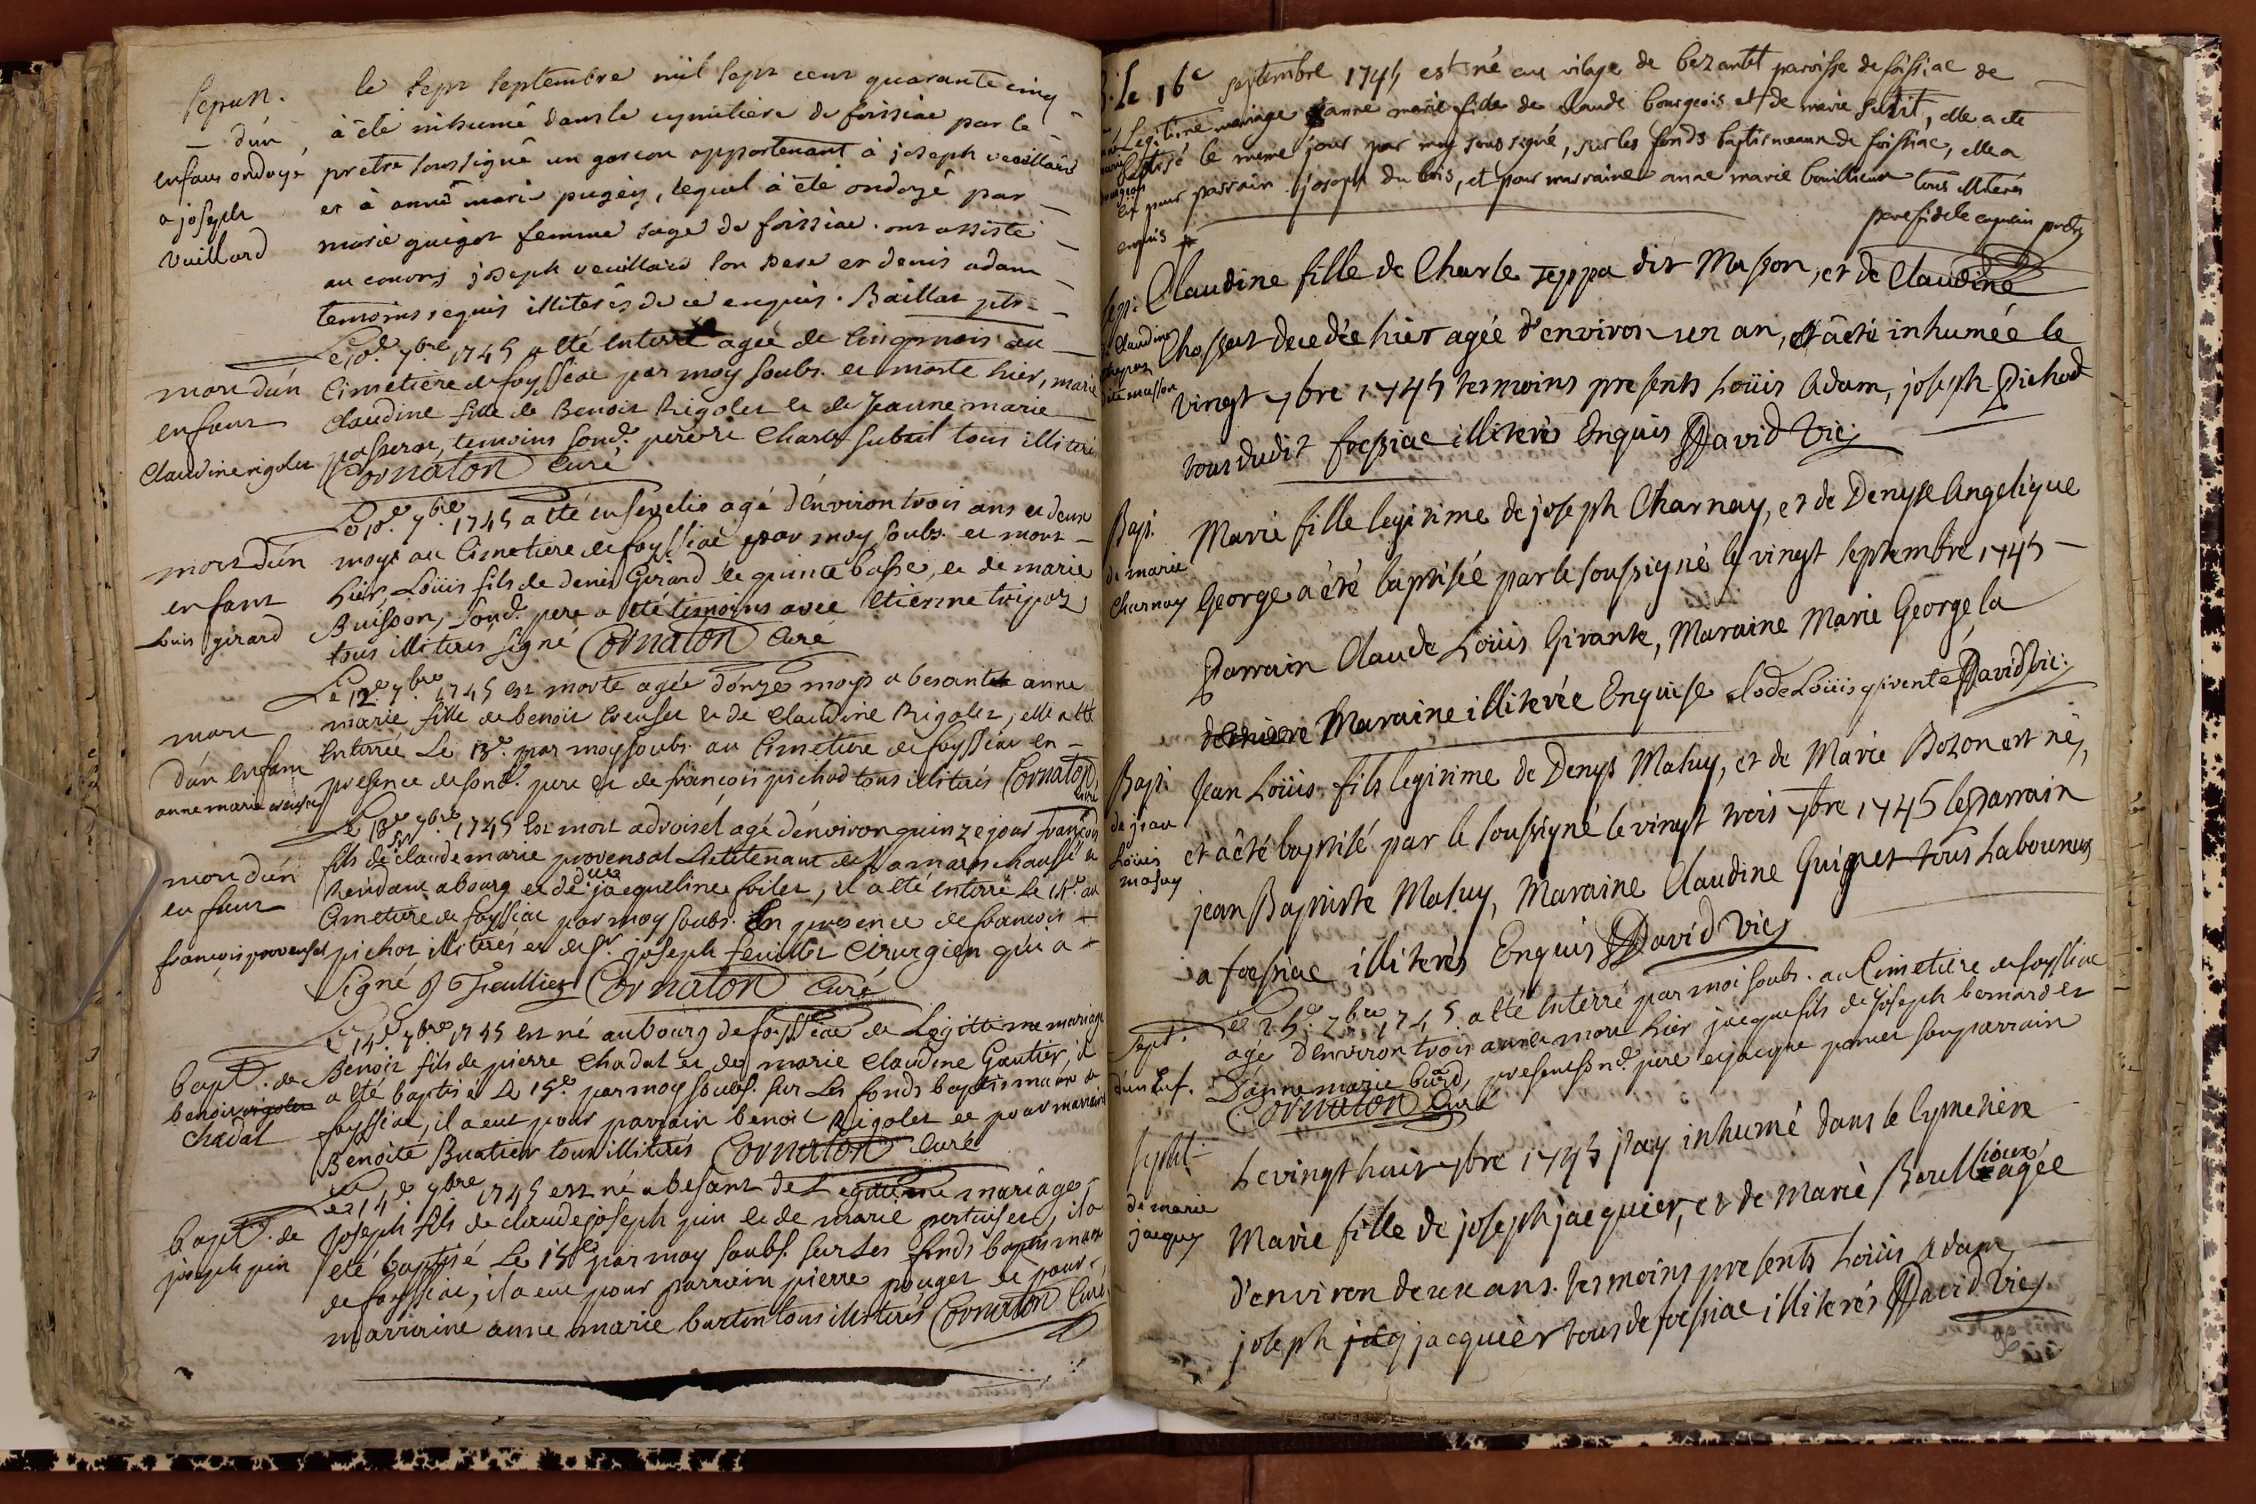 Sepult.
d'un
enfant ondoyé
a joseph
vuillard
le sept septembre mil sept cent quarante cinq
à été inhumé dans le cymitiere de foissiac par le
pretre soussigné un garcon appartenant à joseph veuillard
et à anne marie pugey, lequel à été ondoyé par
marie guigot femme sage de foissiac. ont assisté
au convoy joseph veuillard son pere et denis adam
temoins requis illiterés de ce enquis. Baillat ptr
mort d'un
enfant
Claudine rigolet
Le 10e 7bre 1745 a été enterré agée de cinq mois au
Cimetiere de foyssiac par moy soubs. et morte hier, marie
claudine fille de Benoit Rigolet et de Jeanne marie
passerat, temoins sond. pere et Charle subtil tous illiterés
Cornaton Curé
mort d'un
enfant
Louis girard
Le 10e 7bre 1745 a été ensevelie agé d'environ trois ans et deux
moys au Cimetiere de foyssiac par moy soubs. et mort
hier, Loüis fils de denis Girard de quinte basse, et de marie
Buisson, sond. pere a été temoins avec etienne tripoz
tous illiterés signé Cornaton Curé
mort
d'un enfant
anne marie creuset
Le 12e 7bre 1745 est morte agée d'onze moys a besantet anne
marie fille de benoit Creuset et de Claudine Rigolet, elle a été
enterrée Le 13e par moy soubs. au Cimetiere de foyssiac en
presence de sond. pere et de françois pichod tous illiterés Cornaton
curé
mort d'un
enfant
françois provensal
Le 13e 7bre 1745 est mort a droisel agé d'environ quinze jour françois
fils de sr claude marie provensal Lieutenant de la marechaussé
Residant a bourg et de dlle jacqueline foilet, il a été enterré Le 14e au
Cimetiere de foyssiac par moy soubs. En presence de francois
pichot illiterés et de sr. joseph feuillet Cirurgien qui a
Signé J Feulliez Cornaton Curé
bapt. de
benoit rigolet
chadal
Le 14e 7bre 1745 est né au bourg de foyssiac de Légittime mariage
Benoit fils de pierre Chadal et de marie Claudine Gautier, il
a été baptisé Le 15e par moy soubs. sur Les fonds baptismaux de
foyssiac, il a eut pour parrain benoit Rigolet et pour marraine
Benoite Buatier tous illiterés Cornaton Curé
bapt. de
joseph pin
Le 14e 7bre 1745 est né a besant de Legitime mariage
joseph fils de claude joseph pin et de marie pertuiset, il a
été baptisé Le 15e par moy soubs. sur Les fonds baptismaux
de foyssiac, il a eut pour parrain pierre pouget et pour
marraine anne marie burtin tous illiterés Cornaton Curé
Le 16e septembre 1745 est né au vilage de bezantet parroisse de foissiac de
Legitime mariage anne marie fille de claude bourgeois et de marie subtit, elle a été
batisé le meme jour par moy sous signé, sur les fonds baptismeaux de foissiac, elle a
eut pour parrain joseph du bois, et pour marraine anne marie bouillieux tous illiterés
enquis
pere fidele capucin pretre
Sep:
Claudine
Claudine fille de Charle Teppa dit Masson, et de Claudine
Chossat decedée hier agée d'environ un an, a été inhumée le
vingt 7bre 1745 tesmoins presents Loüis Adam, joseph Pichod
tous dudit foessiac illiterés Enquis David vic:
Bapt.
de marie
Charnay
Marie fille legitime de joseph Charnay, et de Denyse Angelique
George a été baptisée par le soussigné le vingt septembre 1745
Parrain Claude Loüis Girante, Maraine Marie George la
derniere Maraine illiterée Enquise Clode Loüis givente David vic:
Bapt:
de jean
Loüis
mahuy
Jean Loüis fils legitime de Denys Mahuy, et de Marie Bozon est né,
et a été baptisé par le soussigné le vingt trois 7bre 1745 le parrain
jean Baptiste Mahuy, Maraine Claudine Guignet tous Laboureurs
a foessiac illiterés Enquis David vic
Sept.
d'un Enf.
Le 25e 7bre 1745 a été enterré par moi soubs. au Cimetiere de foyssiac
agé d'environ trois années mort hier jacque fils de joseph bernard et
D'anne marie burd, presents sond. pere et jacque pomet son parrain
Cornaton Curé
Sepult
de marie
jacquy
Le vingt huit 7bre 1745 j'ay inhumé dans le Cymetière
Marie fille de joseph jacquier, et de Marie Bouillioux agée
d'environ deux ans. tesmoins presents Loüis Adam
joseph jacq jacquier tous de foessiac illiterés David vic